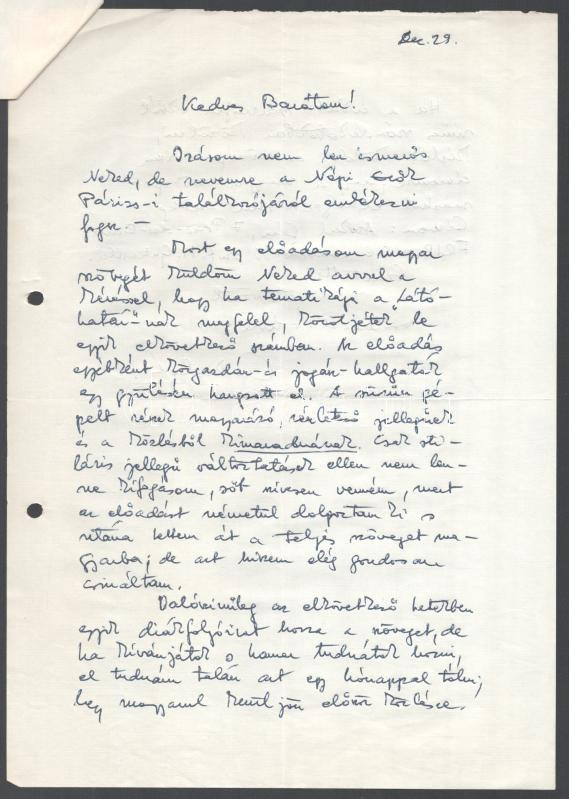 Dec. 29.
Kedves Barátom!
Írásom nem lesz ismerős
Neked, de nevemre a Népi
Párizs-i találkozójáról emlékezni
fogsz. –
Most egy előadásom magyar
szövegét küldöm Neked avval a
kéréssel, hogy ha tematikája a "Látó-
határ"-nak megfelel, közöljétek le
egyik elkövetkező számban. Az előadás
egyébként közgazdán- és jogász-hallgatók
egy gyűlésén hangzott el. A sűrűn gé-
pelt részek magyarázó, részletező jellegűek
és a közlésből kimaradnának. Csak sti-
láris jellegű változtatások ellen nem len-
ne kifogásom, sőt szívesen venném, mert
az előadást németül dolgoztam ki s
utána tettem át a teljes szöveget ma-
gyarba; de azt hiszem elég gondosan
csináltam.
Valószínűleg az elkövetkező hetekben
egyik diákfolyóirat hozza a szöveget, de
ha kívánjátok s hamar tudnátok hozni,
el tudnám talán azt egy hónappal tolni,
hogy magyarul kerüljön először közlésre.